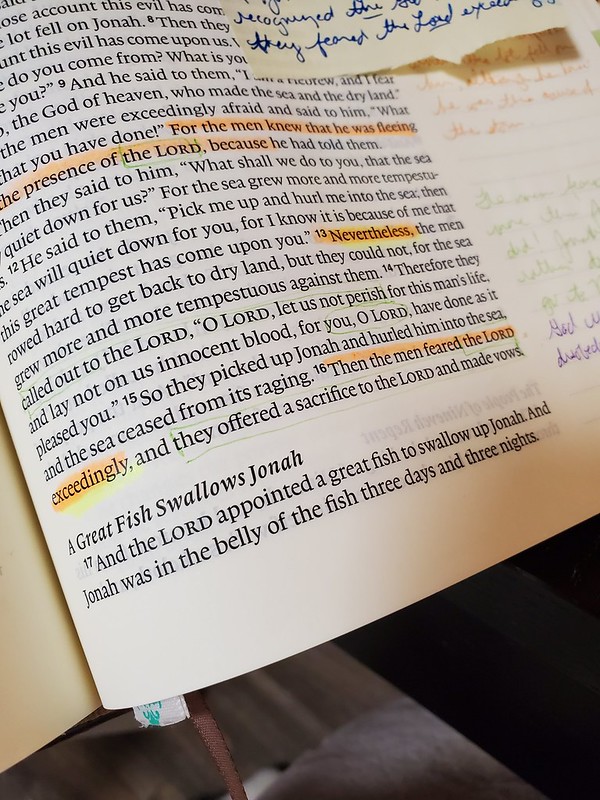 recognized the
they feared the Lord exceedingly
said
ose account this evil has com
e lot fell on Jonah. ⁸Then they
unt this evil has come upon us.
e do you come from? What is yo
e you?" ⁹And he said to them, "I am a Hebrew, and I fear
, the God of heaven, who made the sea and the dry land."
the men were exceedingly afraid and said to him, "What
hat you have done!" For the men knew that he was fleeing
he presence of the LORD, because he had told them.
Then they said to him, "What shall we do to you, that the sea
quiet down for us?" For the sea grew more and more tempestu-
s. ¹²He said to them, "Pick me up and hurl me into the sea; then
he sea will quiet down for you, for I know it is because of me that
this great tempest has come upon you." ¹³Nevertheless, the men
rowed hard to get back to dry land, but they could not, for the sea
grew more and more tempestuous against them. ¹⁴Therefore they
called out to the LORD, "O LORD, let us not perish for this man's life,
and lay not on us innocent blood, for you, O LORD, have done as it
pleased you." ¹⁵So they picked up Jonah and hurled him into the sea,
and the sea ceased from its raging. ¹⁶Then the men feared the LORD
exceedingly, and they offered a sacrifice to the LORD and made vows.
A Great Fish Swallows Jonah
¹⁷And the LORD appointed a great fish to swallow up Jonah. And
Jonah was in the belly of the fish three days and three nights.